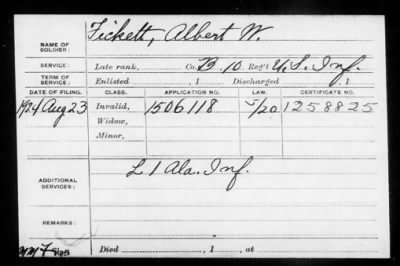 NAME OF SOLDIER: Fickett, Albert W.
SERVICE: Late rank, Co. B. 10 Reg't U.S. Inf.
TERM OF SERVICE: Enlisted , 1 Discharged , 1
DATE OF FILING. CLASS. APPLICATION NO. LAW. CERTIFICATE NO.
1924 Aug 23 Invalid, 1506118 5/20 1258825
Widow,
Minor,
ADDITIONAL SERVICES: L 1 Ala. Inf.
REMARKS:
Died , 1 , at